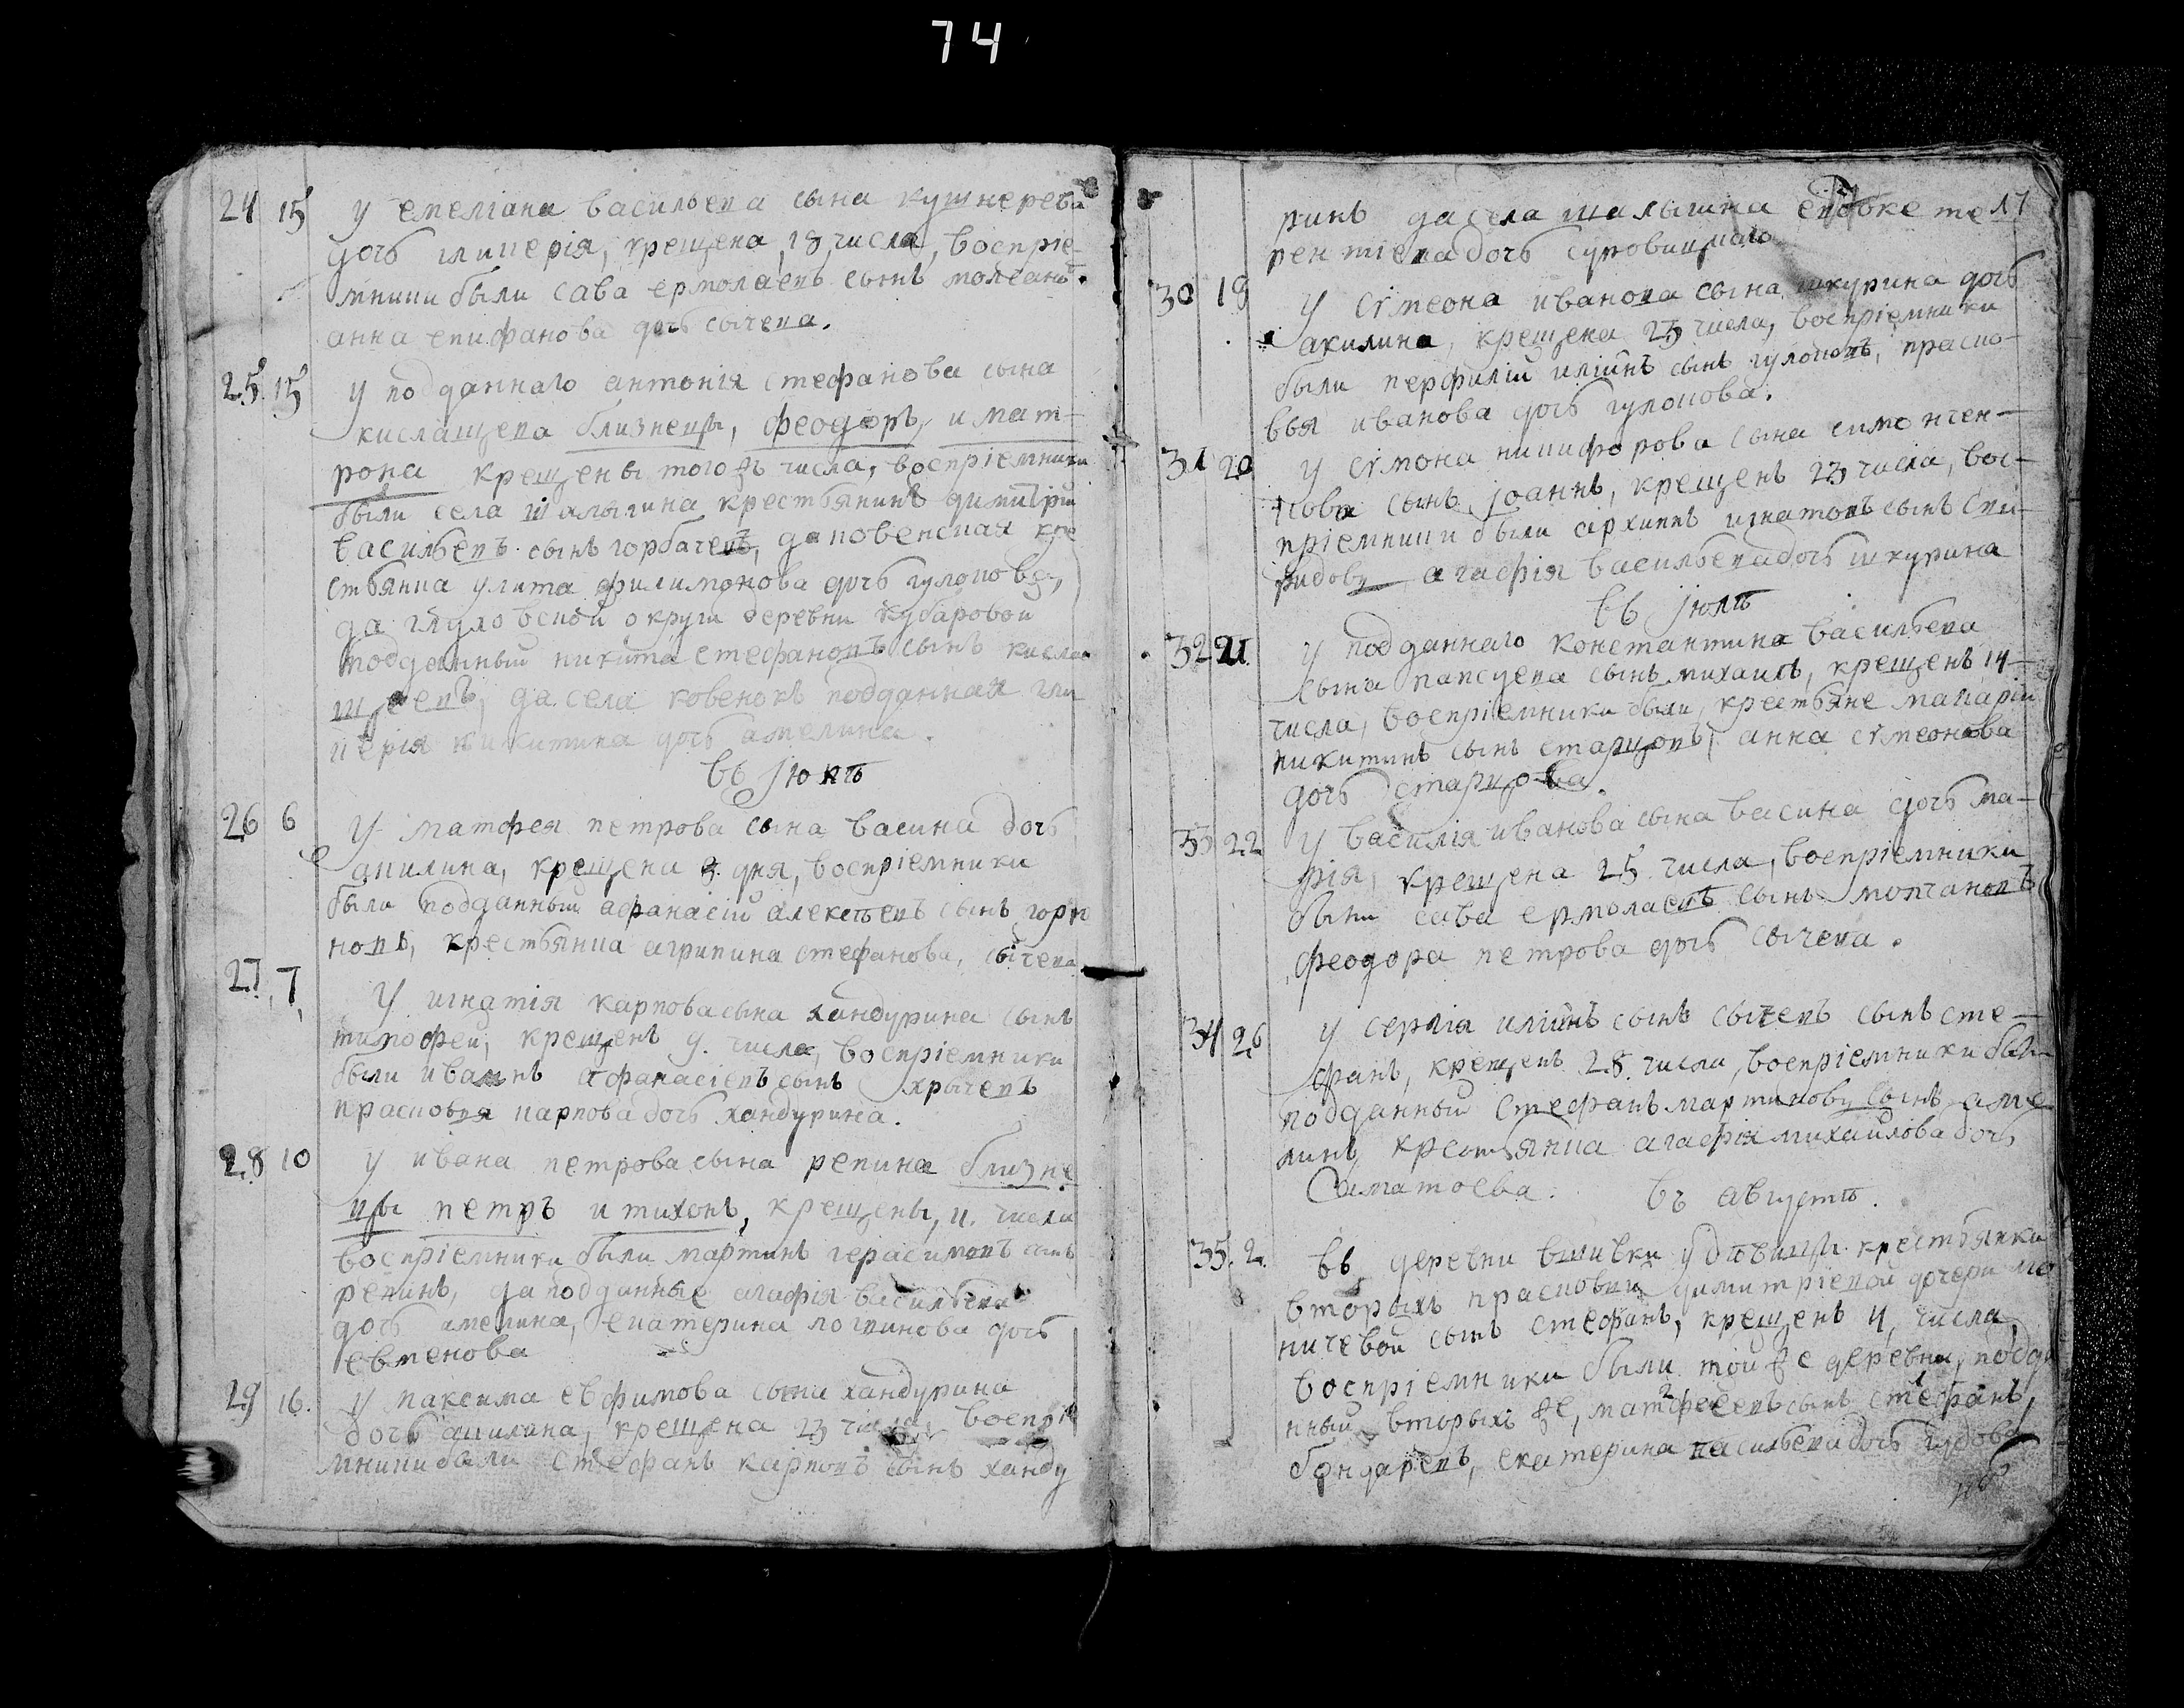 74
24 15 У емелiана васильева сына кушнерева
дочь гликерiя, крещена, 18, числа, воспрiе-
мники были сава ермолаевъ сынъ молчанъ.
анна епифанова дочь сычева.
25. 15 У подданнаго антонiя стефанова сына
кислащева близнецы, феодоръ, и мат-
рона крещены того жъ числа, воспрiемники
были села шалыгина крестьянинъ димитрiй
васильевъ сынъ горбачевъ, да ковенская кре
стьянка улита филимонова дочь гулокова,
да глуховской округи деревни кубаровой
подданный никита стефановъ сынъ кисла
щевъ, да села ковенокъ подданная гли
керiя никитина дочь амелина.
въ iюнѣ
26 6 У матфея петрова сына васина дочь
акилина, крещена 9. дня, воспрiемники
были подданный афанасiй алексѣевъ сынъ горя
новъ, крестьянка агрипина стефанова, сычева
27. 7, У игнатiя карпова сына хандурина сынъ
тимофей, крещенъ 9. числа, воспрiемники
были иваннъ афанасiевъ сынъ хрычевъ
прасковья карпова дочь хандурина.
28 10 У ивана петрова сына репина близне
цы петръ и тихонъ, крещены, 11. числа
воспрiемники были мартинъ герасимовъ сынъ
репинъ, да подданные агафiя васильева
дочь амелина, екатерина логвинова дочь
евменова
29 16. У максима евфимова сына хандурина
дочь акилина, крещена 23 числа, воспрiе
мники были стефанъ карповъ сынъ ханду
17
ринъ да села шалыгина евдоке те
рентiева дочь суровицкаго
30 19 У сѵмеона иванова сына шкурина дочь
акилина, крещена 23 числа, воспрiемники
были перфилiй илiинъ сынъ гулоковъ, праско-
вья иванова дочь гулокова.
31 20 У сѵмона никифорова сына симончен-
кова сынъ iоаннъ, крещенъ 23 числа, вос-
прiемники были архипъ игнатовъ сынъ спи-
ридовъ агафiя васильева дочь шкурина
въ iюлѣ
32 21. У подданнаго константина васильева
сына папсуева сынъ михаилъ, крещенъ 14
числа, воспрiемники были, крестьяне макарiй
никитинъ сынъ старцовъ, анна сѵмеонова
дочь старцова.
33 22 У василiя иванова сына васина дочь ма-
рiя, крещена 25 числа, воспрiемники
были сава ермолаевъ сынъ молчановъ
феодора петрова дочь сычева.
34 26 У сергiя илiинъ сынъ сычевъ сынъ сте-
фанъ, крещенъ 28. числа, воспрiемники были
подданный стефанъ мартиновъ сынъ аме
линъ, крестьянка агафiя михайлова дочь
въ августѣ.
35. 2. въ деревни вшивки у дѣвицы крестьянки
вторыхъ прасковiи димитрiевой дочери
сынъ стефанъ, крещенъ 4, числа,
воспрiемники были той же деревни, подда
нный вторыхъ же, матфеевъ сынъ стефанъ,
бондаревъ, екатерина васильева дочь